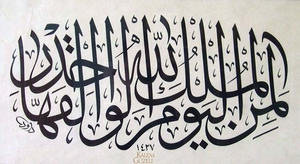 لمن الملك اليوم لله الواحد القهار
١٤٢٧
KALEM
GÜZELİ